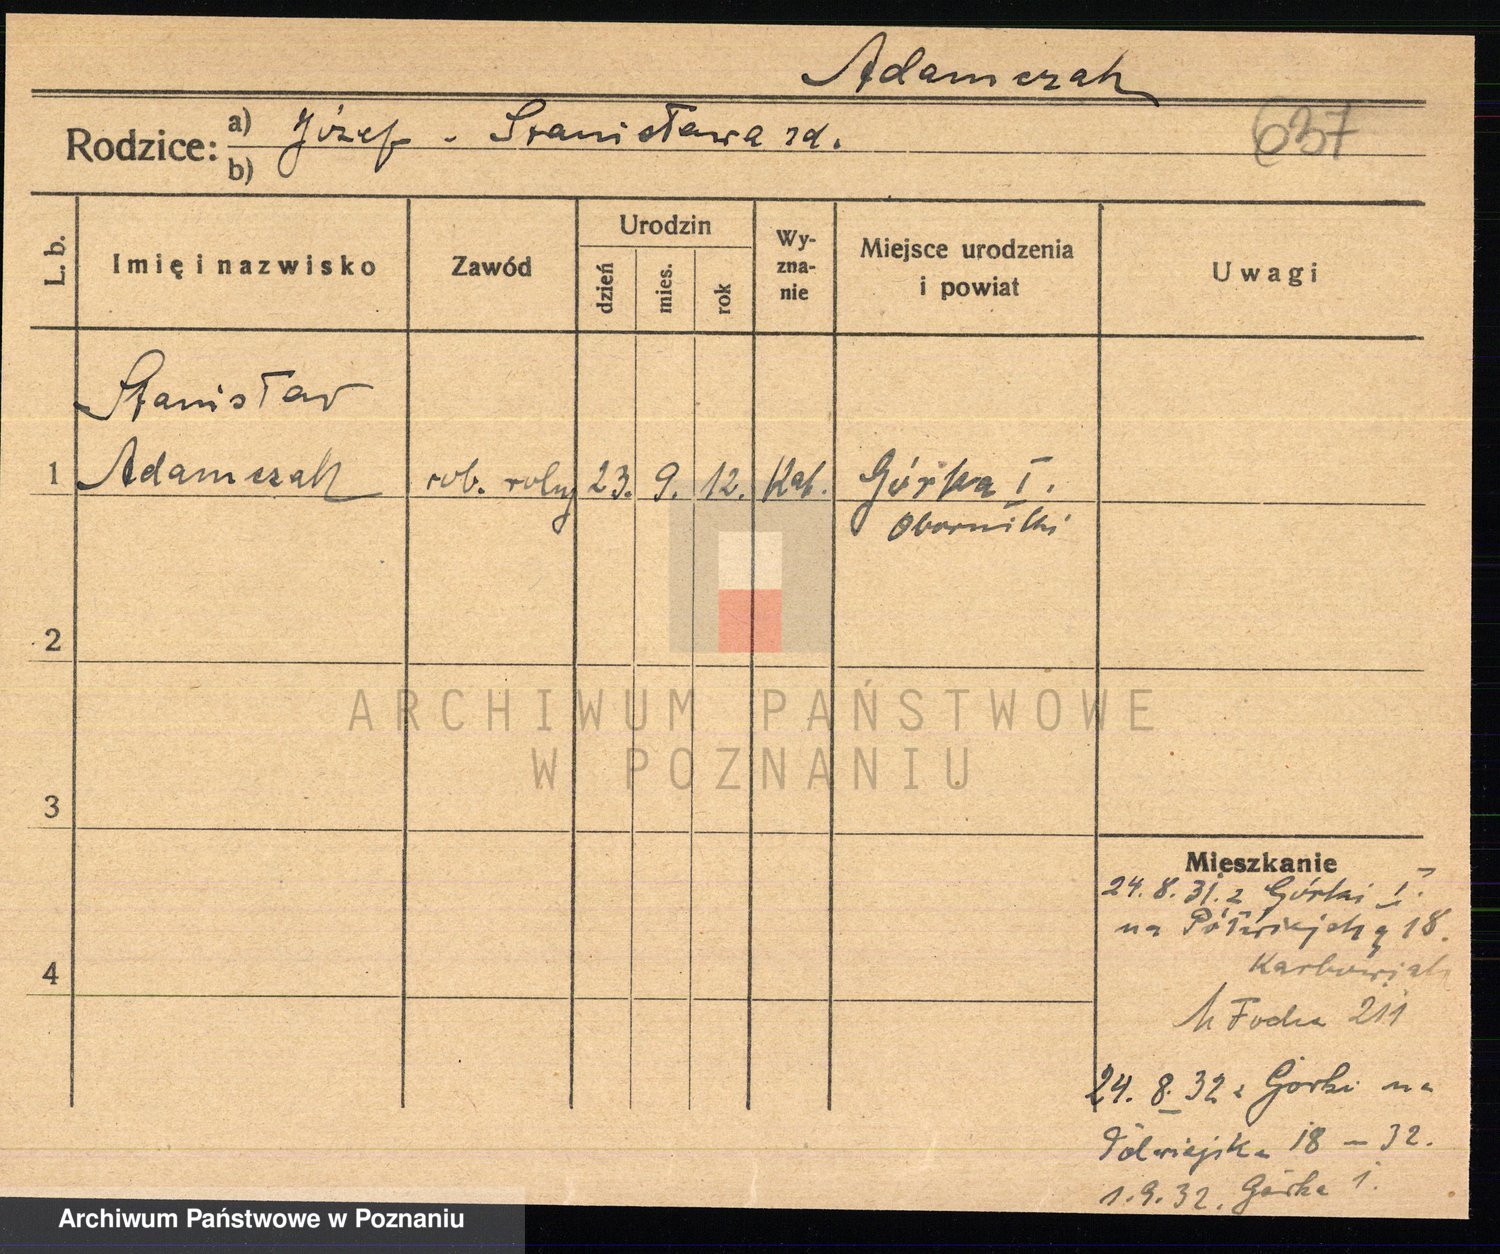 Adamczak
637
Rodzice: a) Józef - Stanisława zd.
b)
L. b.
Imię i nazwisko
Zawód
Urodzin
dzień
mies.
rok
Wy-
zna-
nie
Miejsce urodzenia
i powiat
Uwagi
Stanisław
1 Adamczak rob. rolny 23. 9. 12. Kat. Górka I.
Oborniki
2
ARCHIWUM PAŃSTWOWE
W POZNANIU
3
Mieszkanie
24. 8. 31. z Górki I.
na Półwiejską 18.
4
Karbowiak
Focha 211
24. 8. 32 z Górki na
Półwiejska 18 – 32.
1. 9. 32. Górka I.
Archiwum Państwowe w Poznaniu